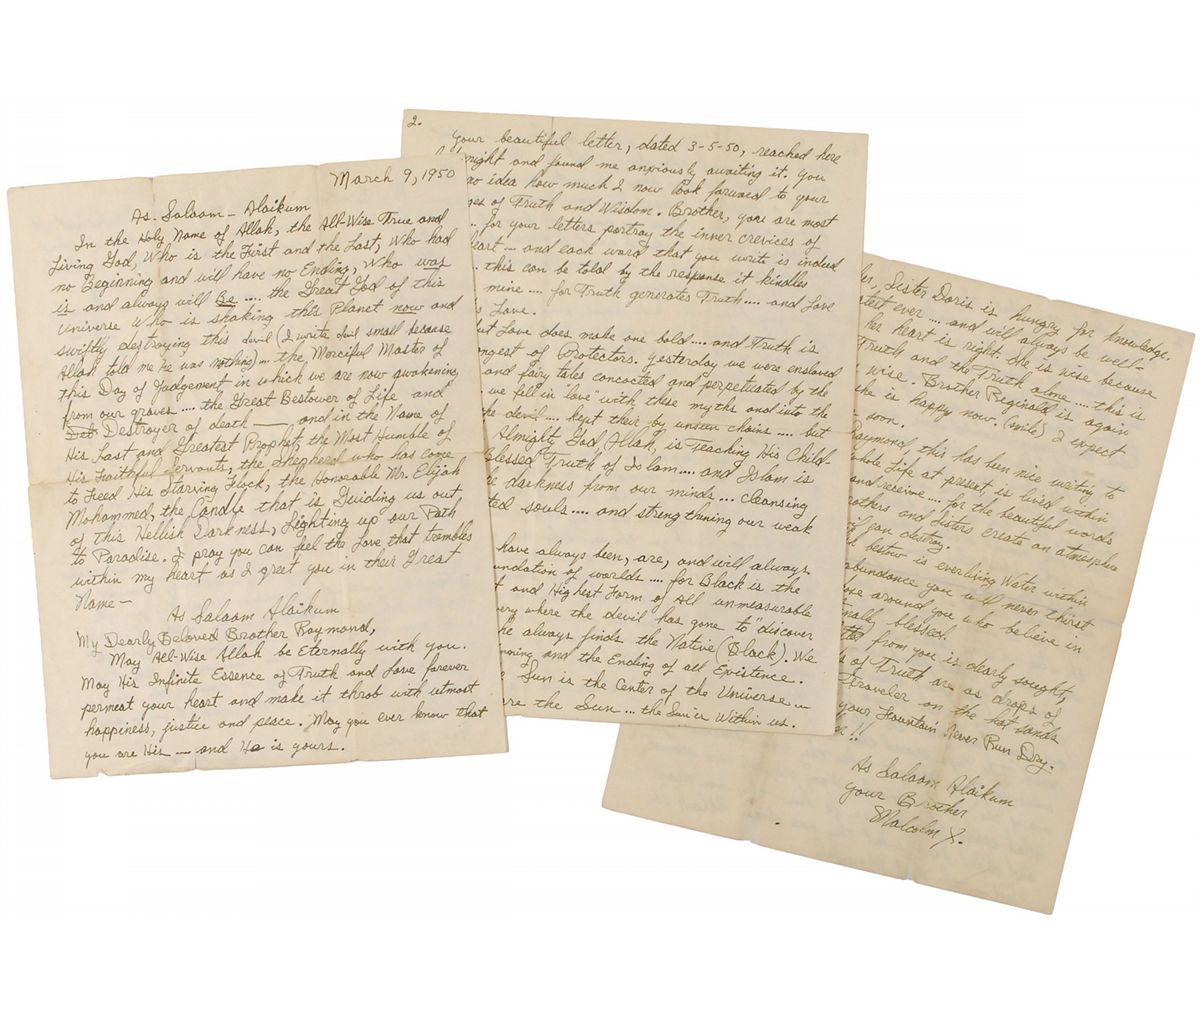 March 9, 1950
As Salaam-Alaikum
In the Holy Name of Allah, the All-Wise True and
Living God, Who is the First and the Last, Who had
no Beginning and will have no Ending, Who was
is and always will Be .... the Great God of this
Universe Who is shaking this Planet now and
swiftly destroying this devil (I write devil small because
Allah told me he was nothing) ... the Merciful Master of
this Day of Judgement in which we are now awakening
from our graves .... the Great Bestower of Life and
Destroyer of death —— and in the Name of
His Last and Greatest Prophet, the Most Humble of
His Faithful Servants, the Shepherd who has come
to Feed His Starving Flock, the Honorable Mr. Elijah
Mohammed, the Candle that is Guiding us out
of this Hellish Darkness, Lighting up our Path
to Paradise. I pray you can feel the Love that trembles
within my heart as I greet you in their Great
Name—
As Salaam Alaikum
My Dearly Beloved Brother Raymond,
May All-Wise Allah be Eternally with you.
May His Infinite Essence of Truth and Love forever
permeat your heart and make it throb with utmost
happiness, justice and peace. May you ever know that
you are His .... and He is yours.
2.
Your beautiful letter, dated 3-5-50, reached here
night and found me anxiously awaiting it. You
no idea how much I now look forward to your
of Truth and Wisdom. Brother, you are most
.. for your letters portray the inner crevices of
... and each word that you write is indeed
. this can be told by the response it kindles
mine .... for Truth generates Truth .... and Love
Love.
Love does make one bold .... and Truth is
of Protectors. Yesterday we were enslaved
and fairy tales concocted and perpetuated by the
we fell in "love" with these myths and into the
the devil .... kept their by unseen chains .... but
Almighty God, Allah, is Teaching His Child-
Blessed Truth of Islam .... and Islam is
darkness from our minds ... cleansing
souls .... and strengthining our weak
have always been, are, and will always
of worlds .... for Black is the
and Highest Form of All unmeasurable
where the devil has gone to "discover
he always finds the Native (Black). We
and the Ending of all Existence.
Sun is the Center of the Universe ...
the Sun ... the Sun is Within us.
Sister Doris is hungry for knowledge.
ever .... and will always be well-
her heart is right. She is wise because
Truth and the Truth alone .... this is
wise. Brother Reginald is again
she is happy now. (smile) I expect
soon.
Raymond, this has been nice writing to
whole Life at present, is lived within
and receive .... for the beautiful words
and Sisters create an atmosphere
can destroy.
bestow is everliving Water within
abundance you will never thirst
around you who believe in
blessed.
from you is dearly sought,
of Truth are as drops of
Traveler on the hot sands
your Fountain Never Run Dry.
!!
As Salaam Alaikum
Your Brother
Malcolm X.